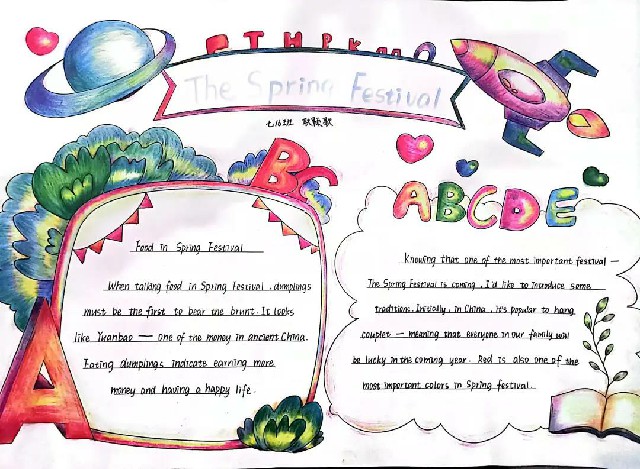 The Spring Festival
七16班
ABC
A
Food in Spring Festival
When talking food in Spring Festival, dumplings
must be the first to bear the brunt. It looks
like Yuanbao — one of the money in ancient China.
Eating dumplings indicate earning more
money and having a happy life.
ABCDE
Knowing that one of the most important festival —
The Spring Festival is coming, I'd like to introduce some
traditions. Initially, in China, it's popular to hang
couplet — meaning that everyone in our family will
be lucky in the coming year. Red is also one of the
most important colors in Spring festival.